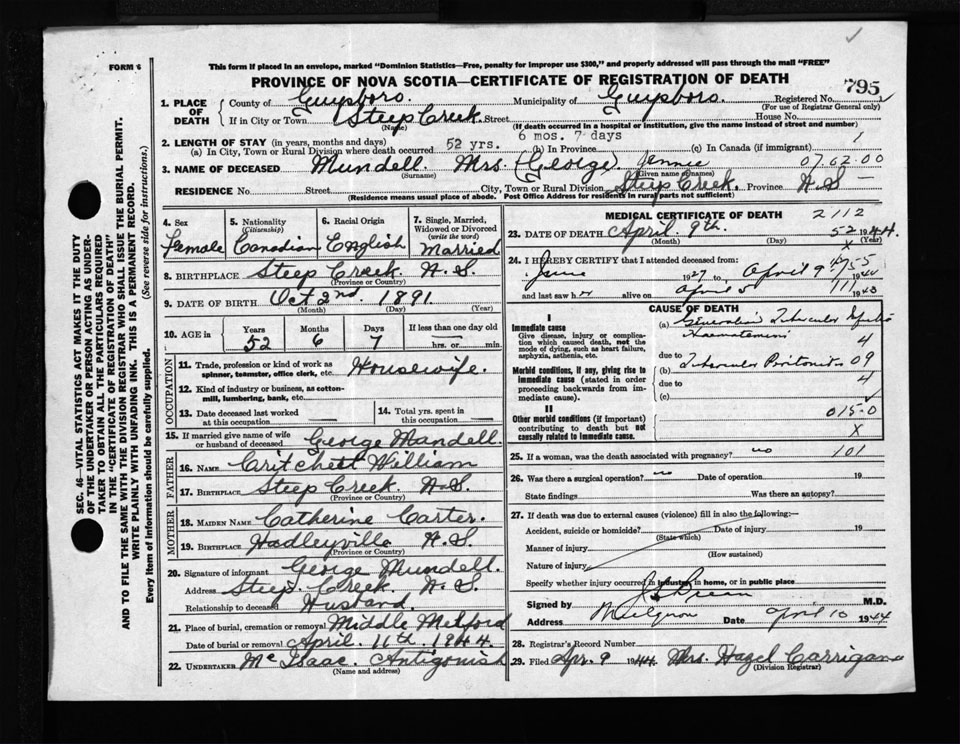 FORM 6
This form if placed in an envelope, marked "Dominion Statistics—Free, penalty for improper use $300," and properly addressed will pass through the mail "FREE"
PROVINCE OF NOVA SCOTIA—CERTIFICATE OF REGISTRATION OF DEATH
795
1. PLACE OF DEATH County of Guysboro. Municipality of Guysboro. Registered No.
(For use of Registrar General only)
If in City or Town Steep Creek Street House No.
(Name) (If death occurred in a hospital or institution, give the name instead of street and number)
6 mos. 7 days
2. LENGTH OF STAY (in years, months and days)
(a) In City, Town or Rural Division where death occurred 52 yrs. (b) In Province (c) In Canada (if immigrant) 1
3. NAME OF DECEASED Mundell. Mrs (George) Jennie 07 62 00
(Surname) (Given names)
RESIDENCE No. Street City, Town or Rural Division Steep Creek. Province N.S —
(Residence means usual place of abode. Post Office Address for residents in rural parts not sufficient)
4. Sex 5. Nationality (Citizenship) 6. Racial Origin 7. Single, Married, Widowed or Divorced (write the word)
Female Canadian English Married
8. BIRTHPLACE Steep Creek N.S.
(Province or Country)
9. DATE OF BIRTH Oct 2nd 1891
(Month) (Day) (Year)
10. AGE in Years Months Days If less than one day old
52 6 7 hrs. or min.
OCCUPATION
11. Trade, profession or kind of work as spinner, teamster, office clerk, etc. Housewife.
12. Kind of industry or business, as cotton-mill, lumbering, bank, etc.
13. Date deceased last worked at this occupation
14. Total yrs. spent in this occupation
15. If married give name of wife or husband of deceased George Mandell.
FATHER
16. NAME Critchett William
17. BIRTHPLACE Steep Creek N.S.
(Province or Country)
MOTHER
18. MAIDEN NAME Catherine Carter.
19. BIRTHPLACE Hadleyville N.S.
(Province or Country)
20. Signature of informant George Mundell.
Address Steep Creek N.S
Relationship to deceased Husband.
21. Place of burial, cremation or removal Middle Melford
Date of burial or removal April 11th. 1944
22. UNDERTAKER McIsaac. Antigonish
(Name and address)
MEDICAL CERTIFICATE OF DEATH 2112
23. DATE OF DEATH April 9th. 52 1944
(Month) (Day) (Year)
X
24. I HEREBY CERTIFY that I attended deceased from:
June 1927 to April 9 1944
and last saw her alive on April 5 1943
CAUSE OF DEATH
I
Immediate cause
Give disease, injury or complication which caused death, not the mode of dying, such as heart failure, asphyxia, asthenia, etc.
(a)
4
due to
Morbid conditions, if any, giving rise to immediate cause (stated in order proceeding backwards from immediate cause).
(b) Tubercular Peritonitis 09
due to 4
(c)
II
Other morbid conditions (if important) contributing to death but not causally related to immediate cause.
015-0
X
25. If a woman, was the death associated with pregnancy? no 101
26. Was there a surgical operation? no Date of operation 19
State findings Was there an autopsy?
27. If death was due to external causes (violence) fill in also the following:—
Accident, suicide or homicide? Date of injury 19
(State which)
Manner of injury
(How sustained)
Nature of injury
Specify whether injury occurred in industry, in home, or in public place
Signed by M.D.
Address Mulgrave Date April 10 1944
28. Registrar's Record Number
29. Filed Apr. 9 1944 Mrs. Hazel Carrigan
(Division Registrar)
SEC. 46—VITAL STATISTICS ACT MAKES IT THE DUTY
OF THE UNDERTAKER OR PERSON ACTING AS UNDER-
TAKER TO OBTAIN ALL THE PARTICULARS REQUIRED
IN THE "CERTIFICATE OF REGISTRATION OF DEATH"
AND TO FILE THE SAME WITH THE DIVISION REGISTRAR WHO SHALL ISSUE THE BURIAL PERMIT.
WRITE PLAINLY WITH UNFADING INK. THIS IS A PERMANENT RECORD.
Every item of information should be carefully supplied. (See reverse side for instructions.)